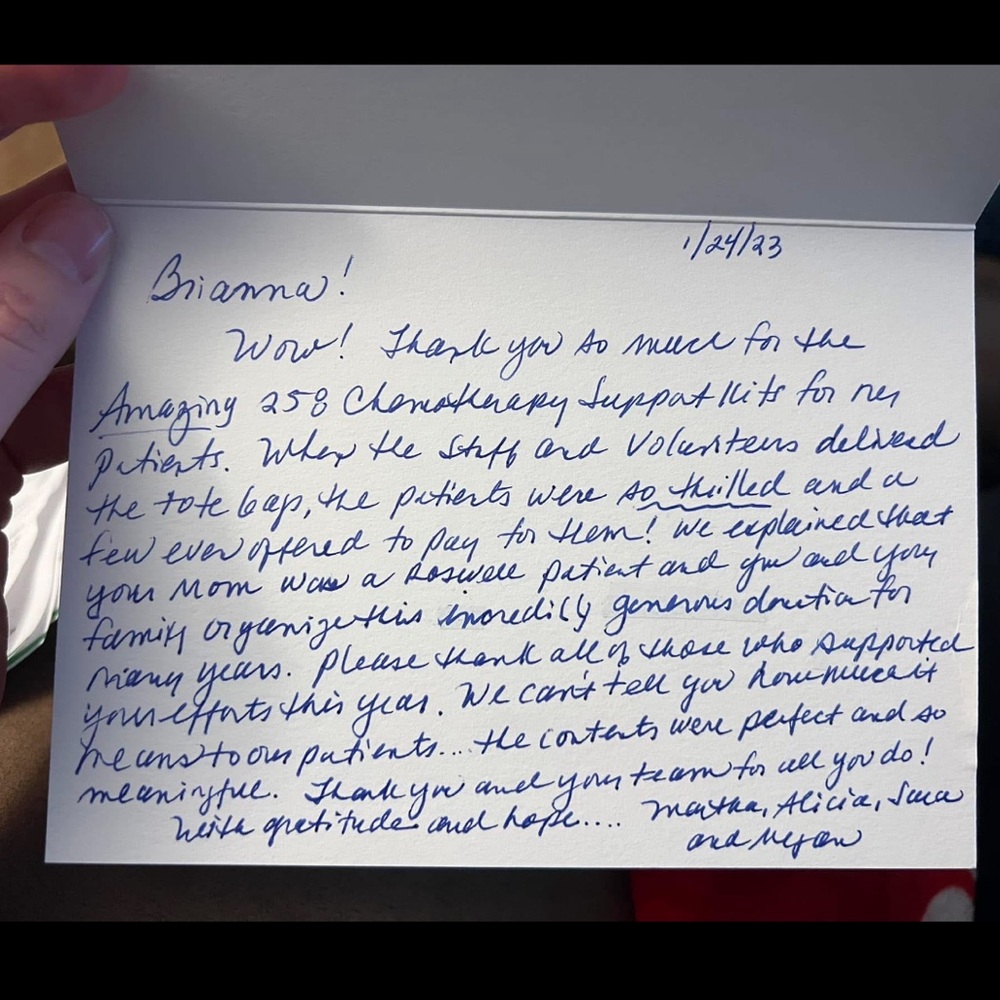 1/24/23
Brianna!
Wow! Thank you so much for the
Amazing 258 Chemotherapy Support Kits for our
patients. When the Staff and Volunteers delivered
the tote bags, the patients were so thrilled and a
few even offered to pay for them! We explained that
your Mom was a Roswell patient and you and your
family organize this incredibly generous donation for
many years. Please thank all of those who supported
your efforts this year. We can't tell you how much it
means to our patients... the contents were perfect and so
meaningful. Thank you and your team for all you do!
With gratitude and hope.... Martha, Alicia, Sara
and Megan